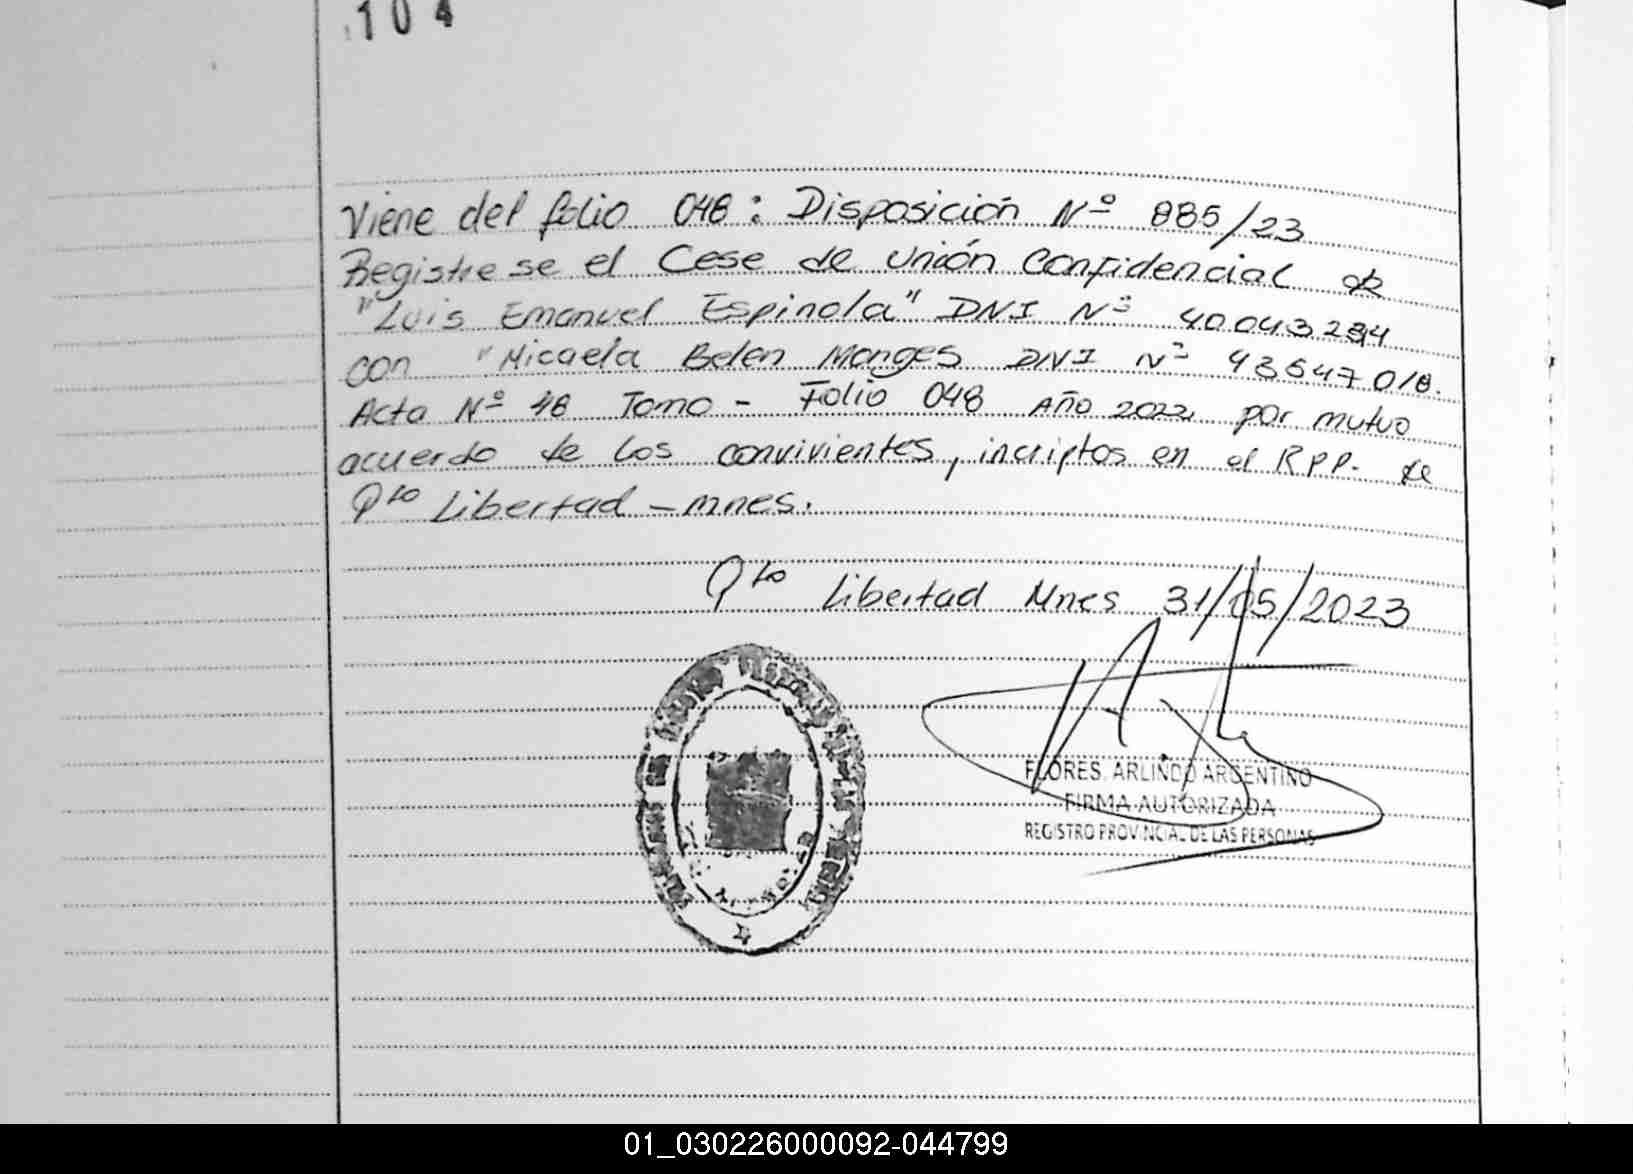 104
Viene del folio 048: Disposición Nº 885/23
Registrese el Cese de Unión Confidencial de
"Luis Emanuel Espinola" DNI Nº 40043284
con "Micaela Belen Monges DNI Nº 43547018.
Acta Nº 48 Tomo - Folio 048 Año 2022, por mutuo
acuerdo de los convivientes, incriptos en el RPP. de
Pto Libertad - mnes.
Pto Libertad Mnes 31/05/2023
FLORES, ARLINDO ARGENTINO
FIRMA AUTORIZADA
REGISTRO PROVINCIAL DE LAS PERSONAS
01_030226000092-044799